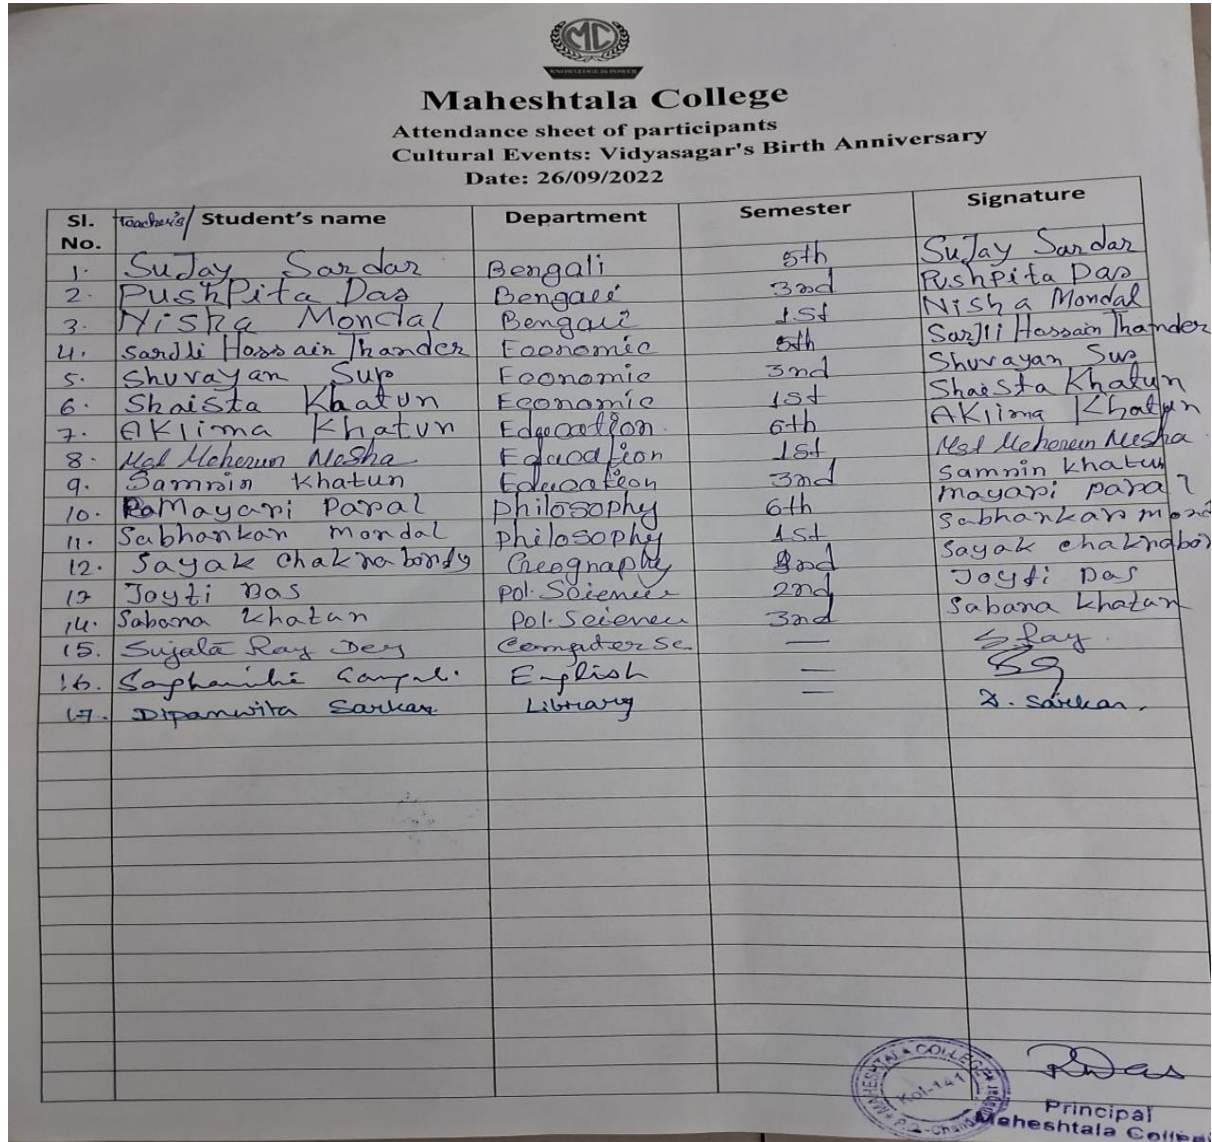 MC
KNOWLEDGE IS POWER
Maheshtala College
Attendance sheet of participants
Cultural Events: Vidyasagar's Birth Anniversary
Date: 26/09/2022
Sl. No. Teacher's/ Student's name Department Semester Signature
1. SuJay Sardar Bengali 5th SuJay Sardar
2. PushPita Das Bengali 3nd PushPita Das
3. Nisha Mondal Bengali 1st Nisha Mondal
4. Sardli Hossain Thander Economic 5th SarJli Hossain Thander
5. Shuvayan Economic 3nd Shuvayan
6. Shaista Khatun Economic 1st Shaista Khatun
7. AKlima Khatun Education 6th AKlima Khatun
8. Mst Meherun Nesha Education 1st Mst Meherun Nesha
9. Samrin Khatun Education 3nd Samrin khatun
10. Mayari Paral philosophy 6th mayari paral
11. Sabhankar mondal philosophy 1st Sabhankar mond
12. Sayak chakrabordy Geography 2nd Sayak chakrabor
13 Joyti Das Pol. Science 2nd Joyti Das
14. Sabana Khatun Pol. Science 3nd Sabana Khatun
15. Sujata Ray Dey Computer Sc. — S Ray
16. English — SG
17. Dipanwita Sarkar Library — D. Sarkar.
MAHESHTALA COLLEGE
Kol-141
RDas
Principal
Maheshtala College